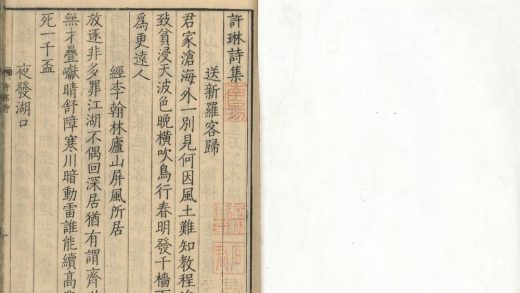 許琳詩集
送新羅客歸
君家滄海外一別見何因風土難知教程
致貧浸天波色晚橫吹鳥行春明發千檣
爲更遠人
經李翰林廬山屏風所居
放逐非多罪江湖不偶回深居猶有謂齊
無才疊巘晴舒障寒川暗動雷誰能續高
死一千盃
夜發湖口